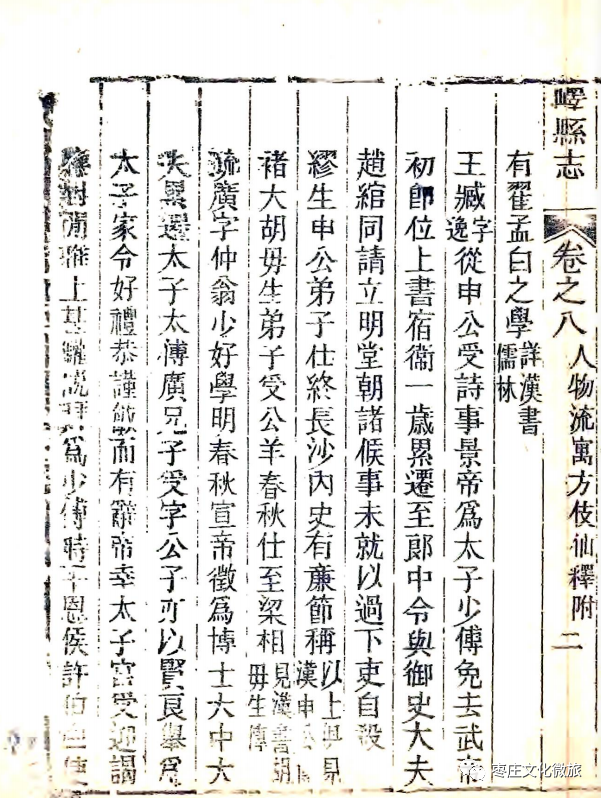 嶧縣志
卷之八 人物流寓方伎仙釋附 二
有翟孟白之學 詳漢書儒林
王臧 字逸 從申公受詩事景帝為太子少傅免去武帝
初卽位上書宿衞一歲累遷至郞中令與御史大夫
趙綰同請立明堂朝諸侯事未就以過下吏自殺
繆生申公弟子仕終長沙內史有廉節稱 以上俱見漢申公
褚大胡毋生弟子受公羊春秋仕至梁相 見漢書胡毋生傳
疏廣字仲翁少好學明春秋宣帝徵為博士太中大
夫累遷太子太傅廣兄子受字公子亦以賢良舉為
太子家令好禮恭謹敏而有辭帝幸太子宮受迎謁
應對閒雅上甚讙說 為少傅時平恩侯許伯
枣庄文化微旅